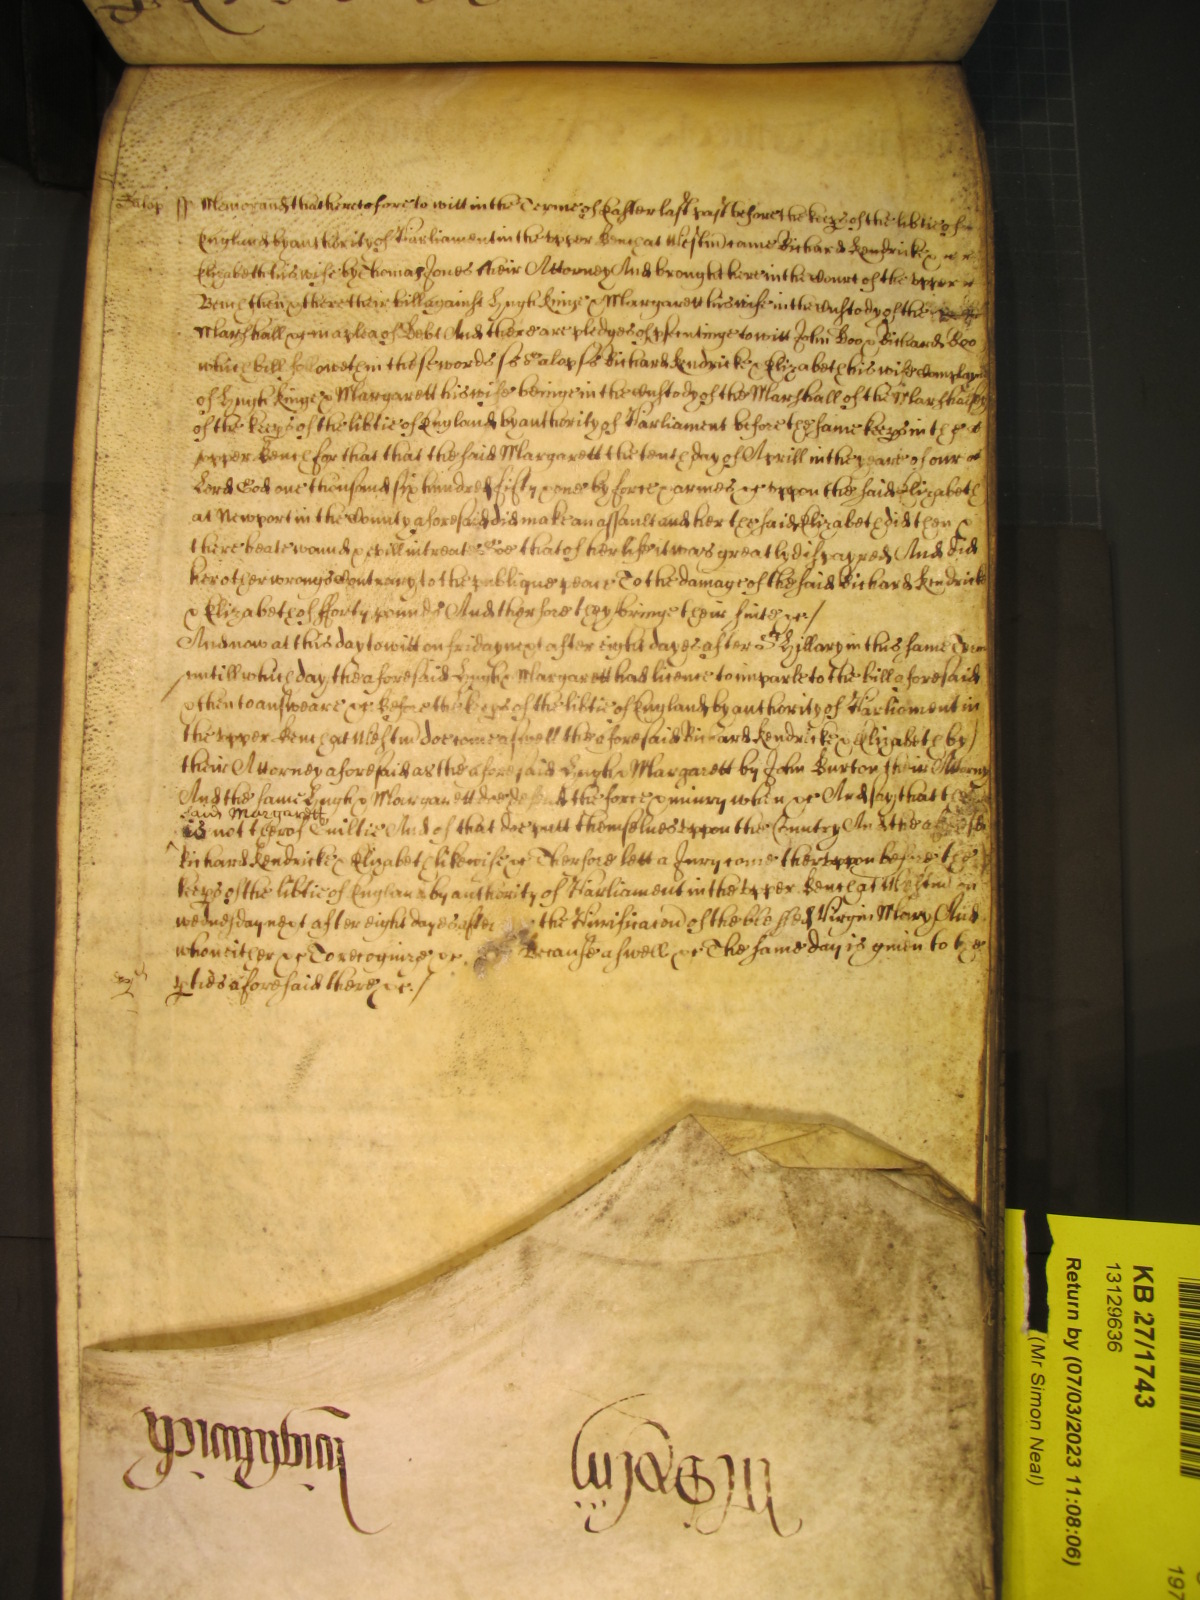 Salop ss Memorand that heretofore to witt in the Terme of Easter last past before the keeps of the libtie of
England by authority of Parliament in the upper Bench at Westm came Richard Kendricke &
Elizabeth his wife by Thomas Jones their Attorney And brought here in the Court of the upper
Bench then & there their bill against Hugh Kinge & Margarett his wife in the Custody of the
Marshall &c in a plea of Debt And there are pledges of psentinge to witt John Doo & Richard Roo
which bill followeth in these words ss Salop ss Richard Kendricke & Elizabeth his wife complayne
of Hugh Kinge & Margarett his wife beinge in the Custody of the Marshall of the Marshalsey
of the keeps of the libtie of England by authority of Parliament before the same keeps in the
upper Bench for that that the said Margarett the tenth day of Aprill in the yeare of our
Lord God one thousand six hundred fifty & one by force & armes &c uppon the said Elizabeth
at Newport in the County aforesaid did make an assault and her the said Elizabeth did then &
there beate wound & evill intreate Soe that of her life it was greatly dispayred And did
her other wrongs Contrary to the publique peace To the damage of the said Richard Kendricke
& Elizabeth of fforty pounds And therfore they bringe their suite &c /
And now at this day to witt on friday next after eight dayes after St Hillary in this same Terme
untill which day the aforesaid Hugh & Margarett had licence to imparle to the bill aforesaid
& then to answeare &c Before the keeps of the libtie of England by authority of Parliament in
the upper Bench at Westm doe come aswell the aforesaid Richard Kendricke & Elizabeth by
their Attorney aforesaid as the aforesaid Hugh & Margarett by John Burton their Attorney
And the same Hugh & Margarett doe defend the force & iniury when &c And say that the
said Margarett
is not therof Guiltie And of that doe putt themselves uppon the Country And the aforesaid
Richard Kendricke & Elizabeth likewise &c Therfore lett a Jury come theruppon before the
keeps of the libtie of England by authority of Parliament in the upper Bench at Westm on
wednesday next after eight dayes after the Purificacon of the blessed Virgin Mary And
who neither &c To recognize &c Because aswell &c The same day is given to the
pties aforesaid there &c /
KB 27/1743
13129636
Return by (07/03/2023 11:08:06)
(Mr Simon Neal)
197